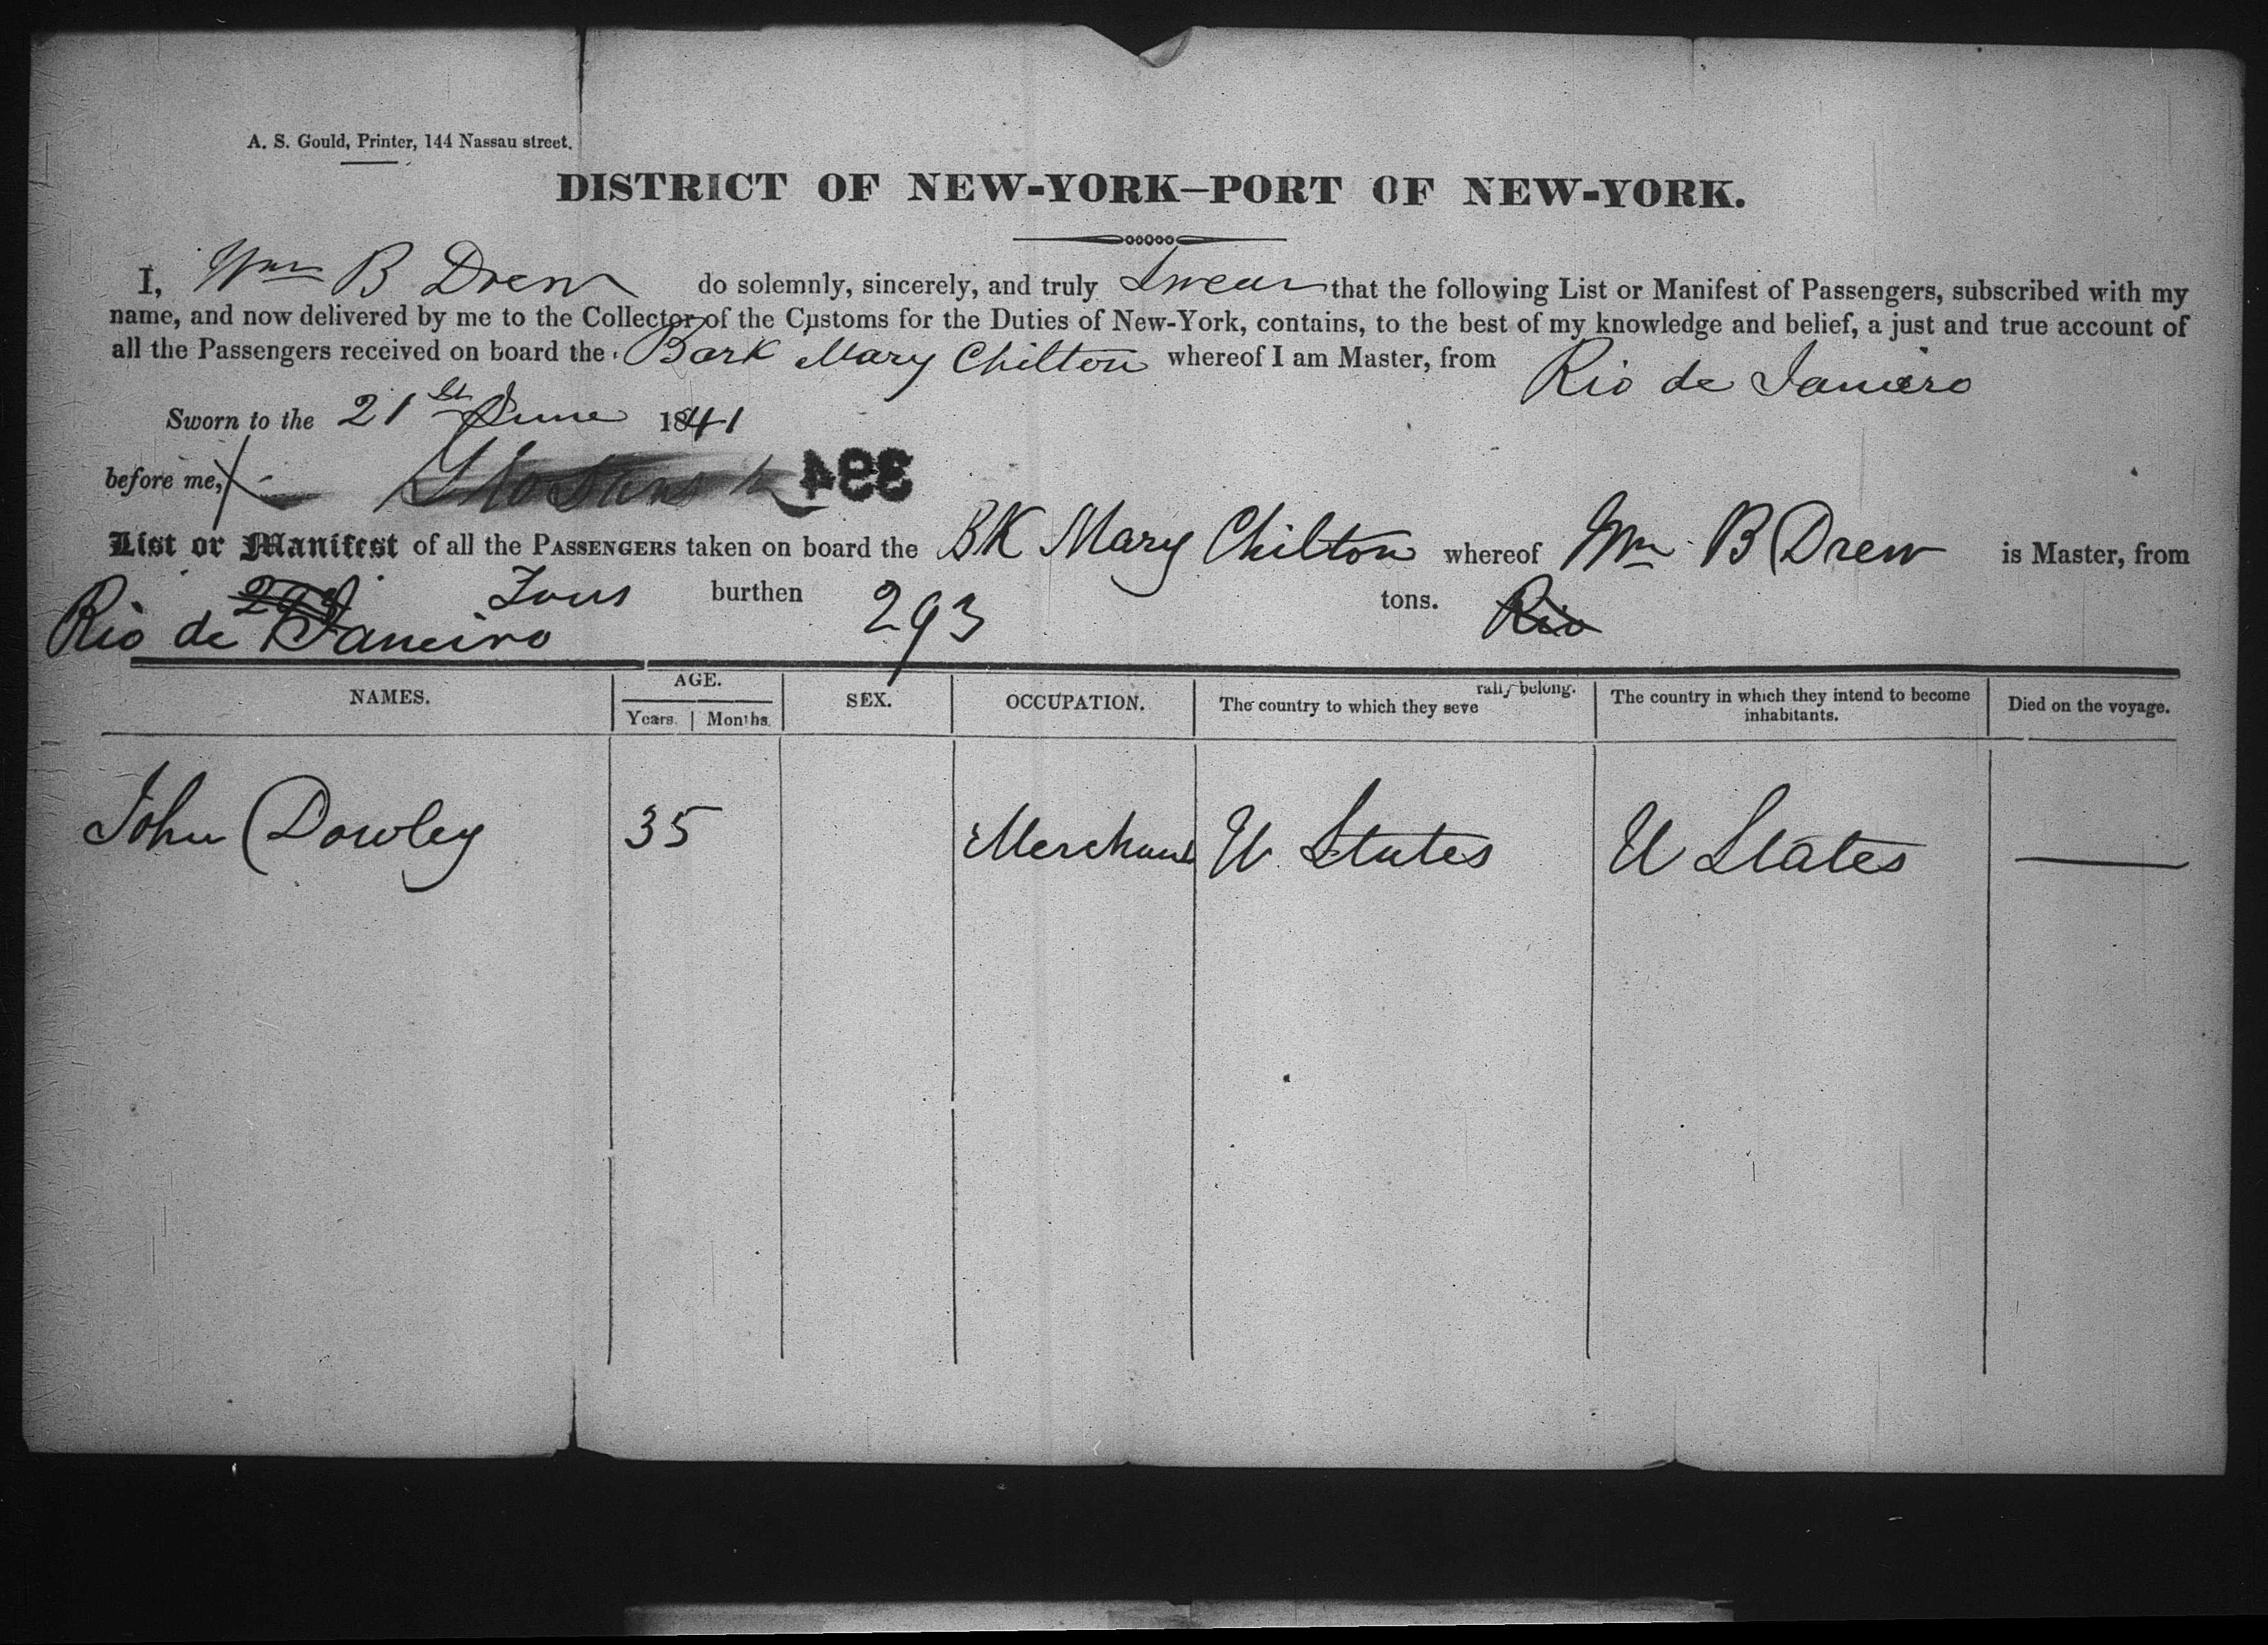 A. S. Gould, Printer, 144 Nassau street.
DISTRICT OF NEW-YORK—PORT OF NEW-YORK.
I, Wm B Drew do solemnly, sincerely, and truly Swear that the following List or Manifest of Passengers, subscribed with my
name, and now delivered by me to the Collector of the Customs for the Duties of New-York, contains, to the best of my knowledge and belief, a just and true account of
all the Passengers received on board the Bark Mary Chilton whereof I am Master, from Rio de Janiero
Sworn to the 21st June 1841
before me, 394
List or Manifest of all the PASSENGERS taken on board the BK Mary Chilton whereof Wm B Drew is Master, from
Rio de Janeiro 293 Tons burthen 293 tons. Rio
NAMES. AGE. Years. Months. SEX. OCCUPATION. The country to which they severally belong. The country in which they intend to become inhabitants. Died on the voyage.
John Dowley 35 Merchant U States U States —